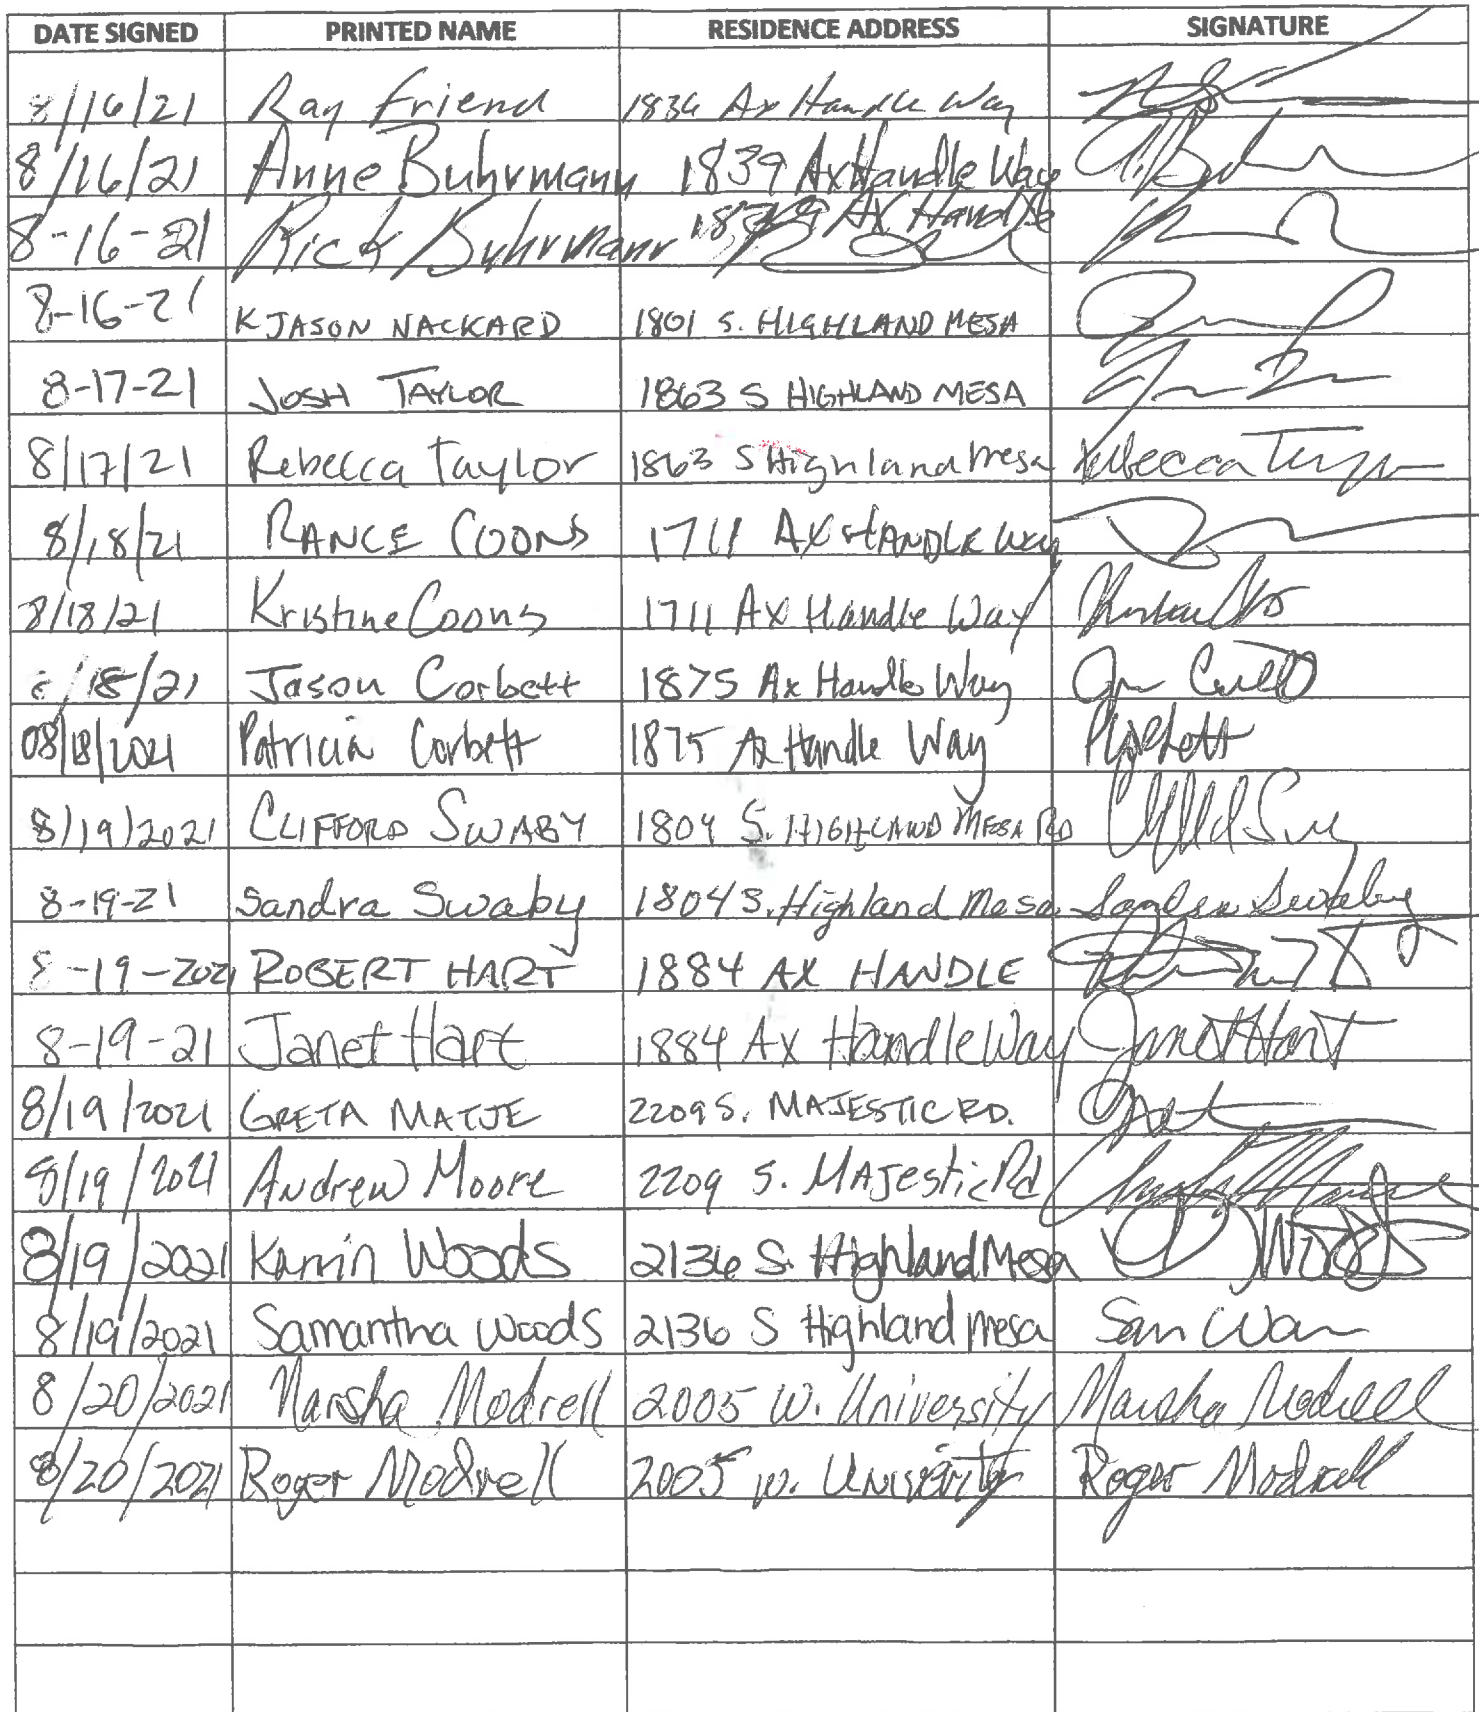 DATE SIGNED PRINTED NAME RESIDENCE ADDRESS SIGNATURE
8/16/21 Ray Friend 1836 Ax Handle Way
8/16/21 Anne Buhrmann 1839 Ax Handle Way
8-16-21 Rick Buhrmann 1839 Ax Handle
8-16-21 K JASON NACKARD 1801 S. HIGHLAND MESA
8-17-21 JOSH TAYLOR 1863 S HIGHLAND MESA
8/17/21 Rebecca Taylor 1863 S Highland Mesa Rebecca
8/18/21 RANCE COONS 1711 AX HANDLE WAY
8/18/21 Kristine Coons 1711 Ax Handle Way
8/18/21 Jason Corbett 1875 Ax Handle Way
08/18/2021 Patricia Corbett 1875 Ax Handle Way PCorbett
8/19/2021 CLIFFORD SWABY 1804 S. HIGHLAND MESA RD
8-19-21 Sandra Swaby 1804 S. Highland Mesa Sandra Swaby
8-19-2021 ROBERT HART 1884 AX HANDLE
8-19-21 Janet Hart 1884 Ax Handle Way Janet Hart
8/19/2021 GRETA MATJE 2209 S. MAJESTIC RD.
8/19/2021 Andrew Moore 2209 S. Majestic Rd
8/19/2021 Karrin Woods 2136 S. Highland Mesa Woods
8/19/2021 Samantha Woods 2136 S Highland Mesa Sam
8/20/2021 Marsha Modrell 2005 W. University Marsha Modrell
8/20/2021 Roger Modrell 2005 W. University Roger Modrell